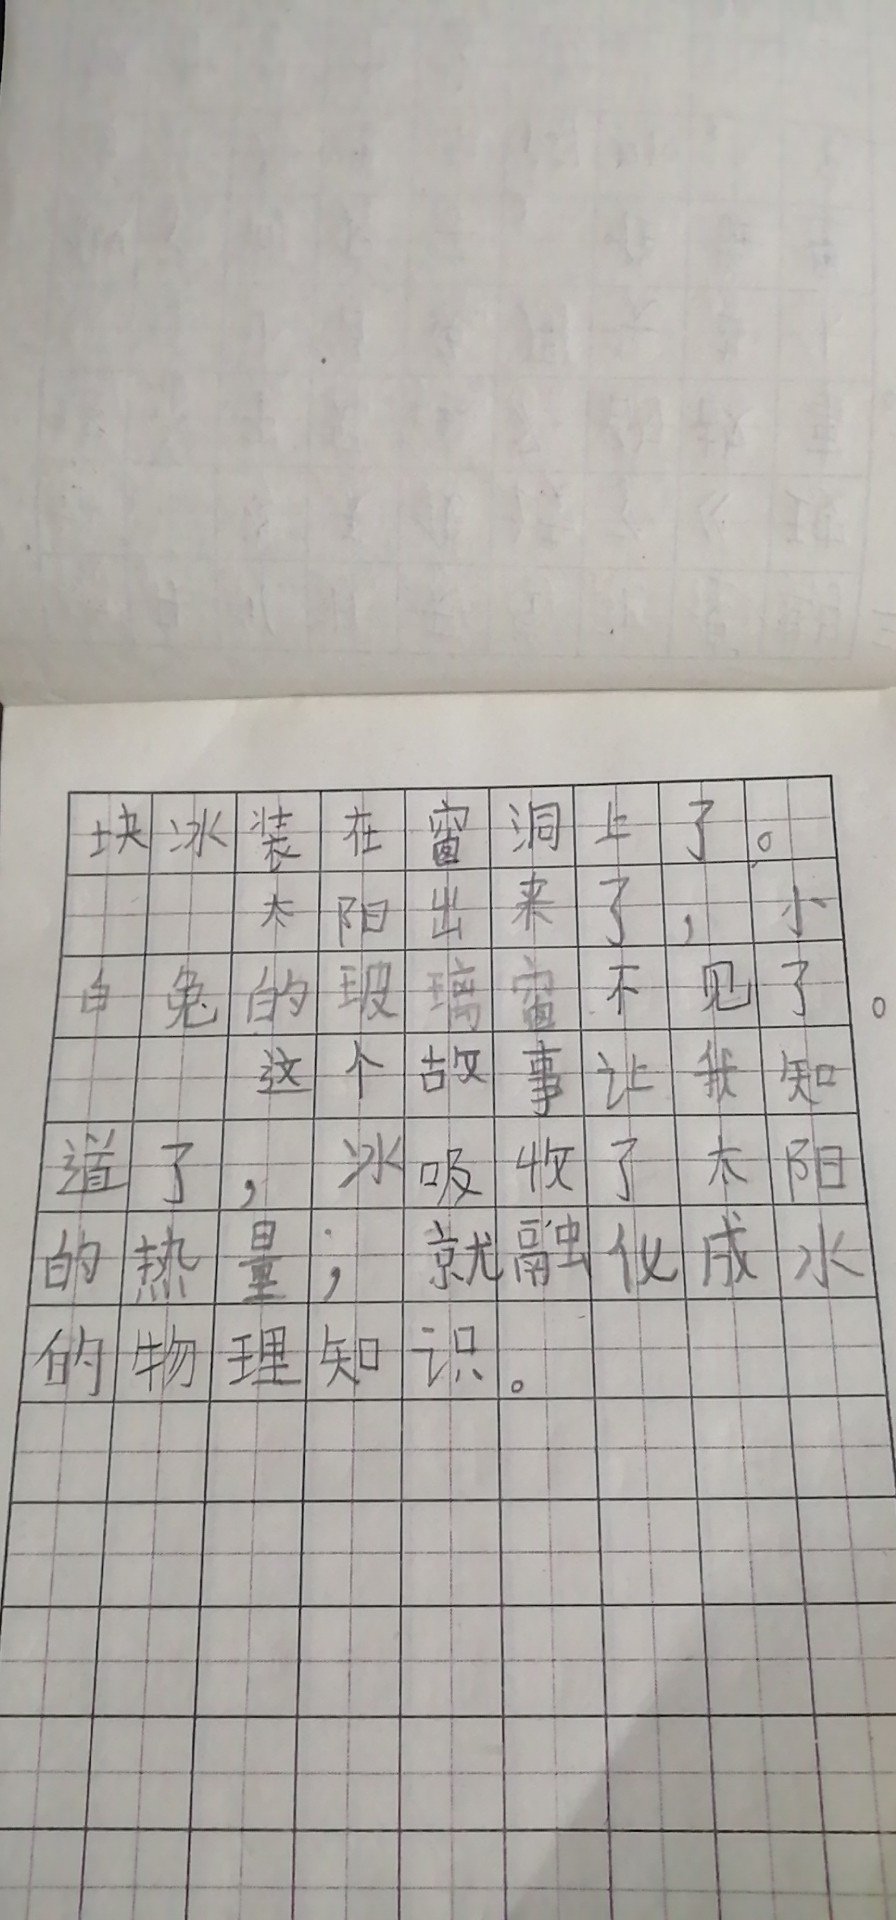 块冰装在窗洞上了。
太阳出来了，小
白兔的玻璃窗不见了。
这个故事让我知
道了，冰吸收了太阳
的热量；就融化成水
的物理知识。